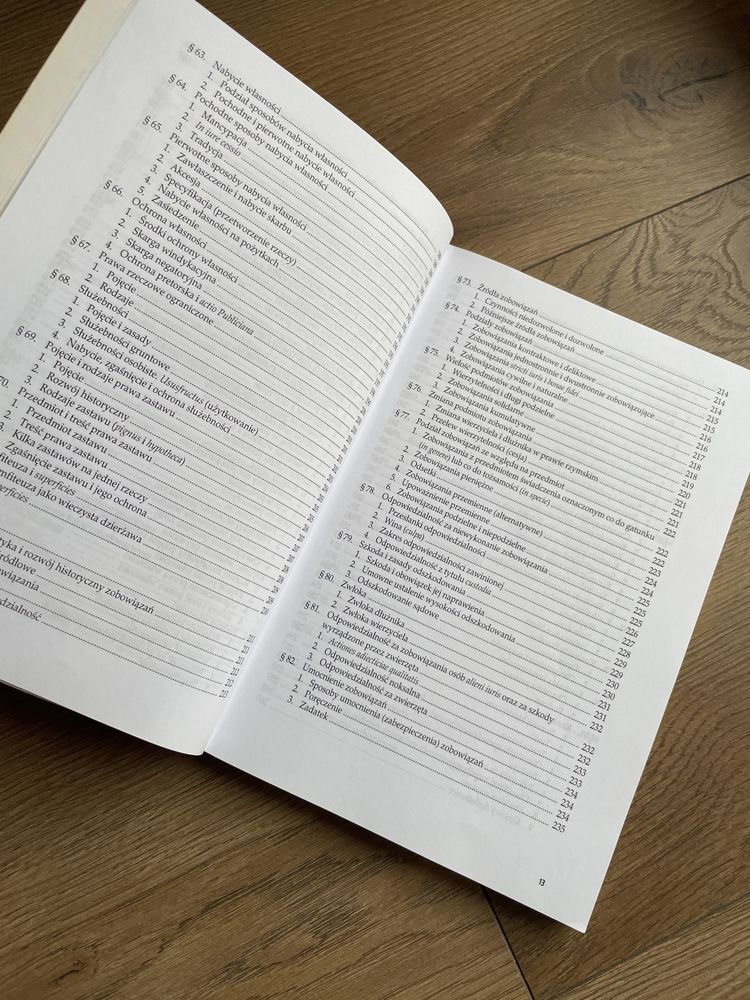 § 63. Nabycie własności
1. Podział sposobów nabycia własności
2. Pochodne i pierwotne nabycie własności
§ 64. Pochodne sposoby nabycia własności
1. Mancypacja
2. In iure cessio
3. Tradycja
§ 65. Pierwotne sposoby nabycia własności
1. Zawłaszczenie i nabycie skarbu
2. Akcesja
3. Specyfikacja (przetworzenie rzeczy)
4. Nabycie własności na pożytkach
5. Zasiedzenie
§ 66. Ochrona własności
1. Środki ochrony własności
2. Skarga windykacyjna
3. Skarga negatoryjna
4. Ochrona pretorska i actio Publiciana
§ 67. Prawa rzeczowe ograniczone
1. Pojęcie
2. Rodzaje
§ 68. Służebności
1. Pojęcie i zasady
2. Służebności gruntowe
3. Służebności osobiste. Ususfructus (użytkowanie)
4. Nabycie, zgaśnięcie i ochrona służebności
§ 69. Pojęcie i rodzaje prawa zastawu
1. Pojęcie
2. Rozwój historyczny
3. Rodzaje zastawu (pignus i hypotheca)
70. Przedmiot i treść prawa zastawu
1. Przedmiot zastawu
2. Treść prawa zastawu
3. Kilka zastawów na jednej rzeczy
Zgaśnięcie zastawu i jego ochrona
i superficies
jako wieczysta dzierżawa
i rozwój historyczny zobowiązań
§ 73. Źródła zobowiązań 214
1. Czynności niedozwolone i dozwolone 214
2. Późniejsze źródła zobowiązań 214
§ 74. Podziały zobowiązań 215
1. Zobowiązania kontraktowe i deliktowe 215
2. Zobowiązania jednostronnie i dwustronnie zobowiązujące 216
3. Zobowiązania stricti iuris i bonae fidei 216
4. Zobowiązania cywilne i naturalne 217
§ 75. Wielość podmiotów zobowiązania 218
1. Wierzytelności i długi podzielne 218
2. Zobowiązania solidarne 219
3. Zobowiązania kumulatywne 220
§ 76. Zmiana podmiotu zobowiązania 221
1. Zmiana wierzyciela i dłużnika w prawie rzymskim 221
2. Przelew wierzytelności (cesja) 222
§ 77. Podział zobowiązań ze względu na przedmiot 222
1. Zobowiązania z przedmiotem świadczenia oznaczonym co do gatunku
(in genere) lub co do tożsamości (in specie) 222
2. Zobowiązania pieniężne 223
3. Odsetki 224
4. Zobowiązania przemienne (alternatywne) 224
5. Upoważnienie przemienne 225
6. Zobowiązania podzielne i niepodzielne 225
§ 78. Odpowiedzialność za niewykonanie zobowiązania 225
1. Przesłanki odpowiedzialności 226
2. Wina (culpa) 227
3. Zakres odpowiedzialności zawinionej 228
4. Odpowiedzialność z tytułu custodia 229
§ 79. Szkoda i zasady odszkodowania 229
1. Szkoda i obowiązek jej naprawienia 229
2. Umowne ustalenie wysokości odszkodowania 230
3. Odszkodowanie sądowe 230
§ 80. Zwłoka 231
1. Zwłoka dłużnika 231
2. Zwłoka wierzyciela 232
§ 81. Odpowiedzialność za zobowiązania osób alieni iuris oraz za szkody
wyrządzone przez zwierzęta 232
1. Actiones adiecticiae qualitatis 232
2. Odpowiedzialność noksalna 233
3. Odpowiedzialność za zwierzęta 233
§ 82. Umocnienie zobowiązań 234
1. Sposoby umocnienia (zabezpieczenia) zobowiązań 234
2. Poręczenie 234
3. Zadatek 235
13